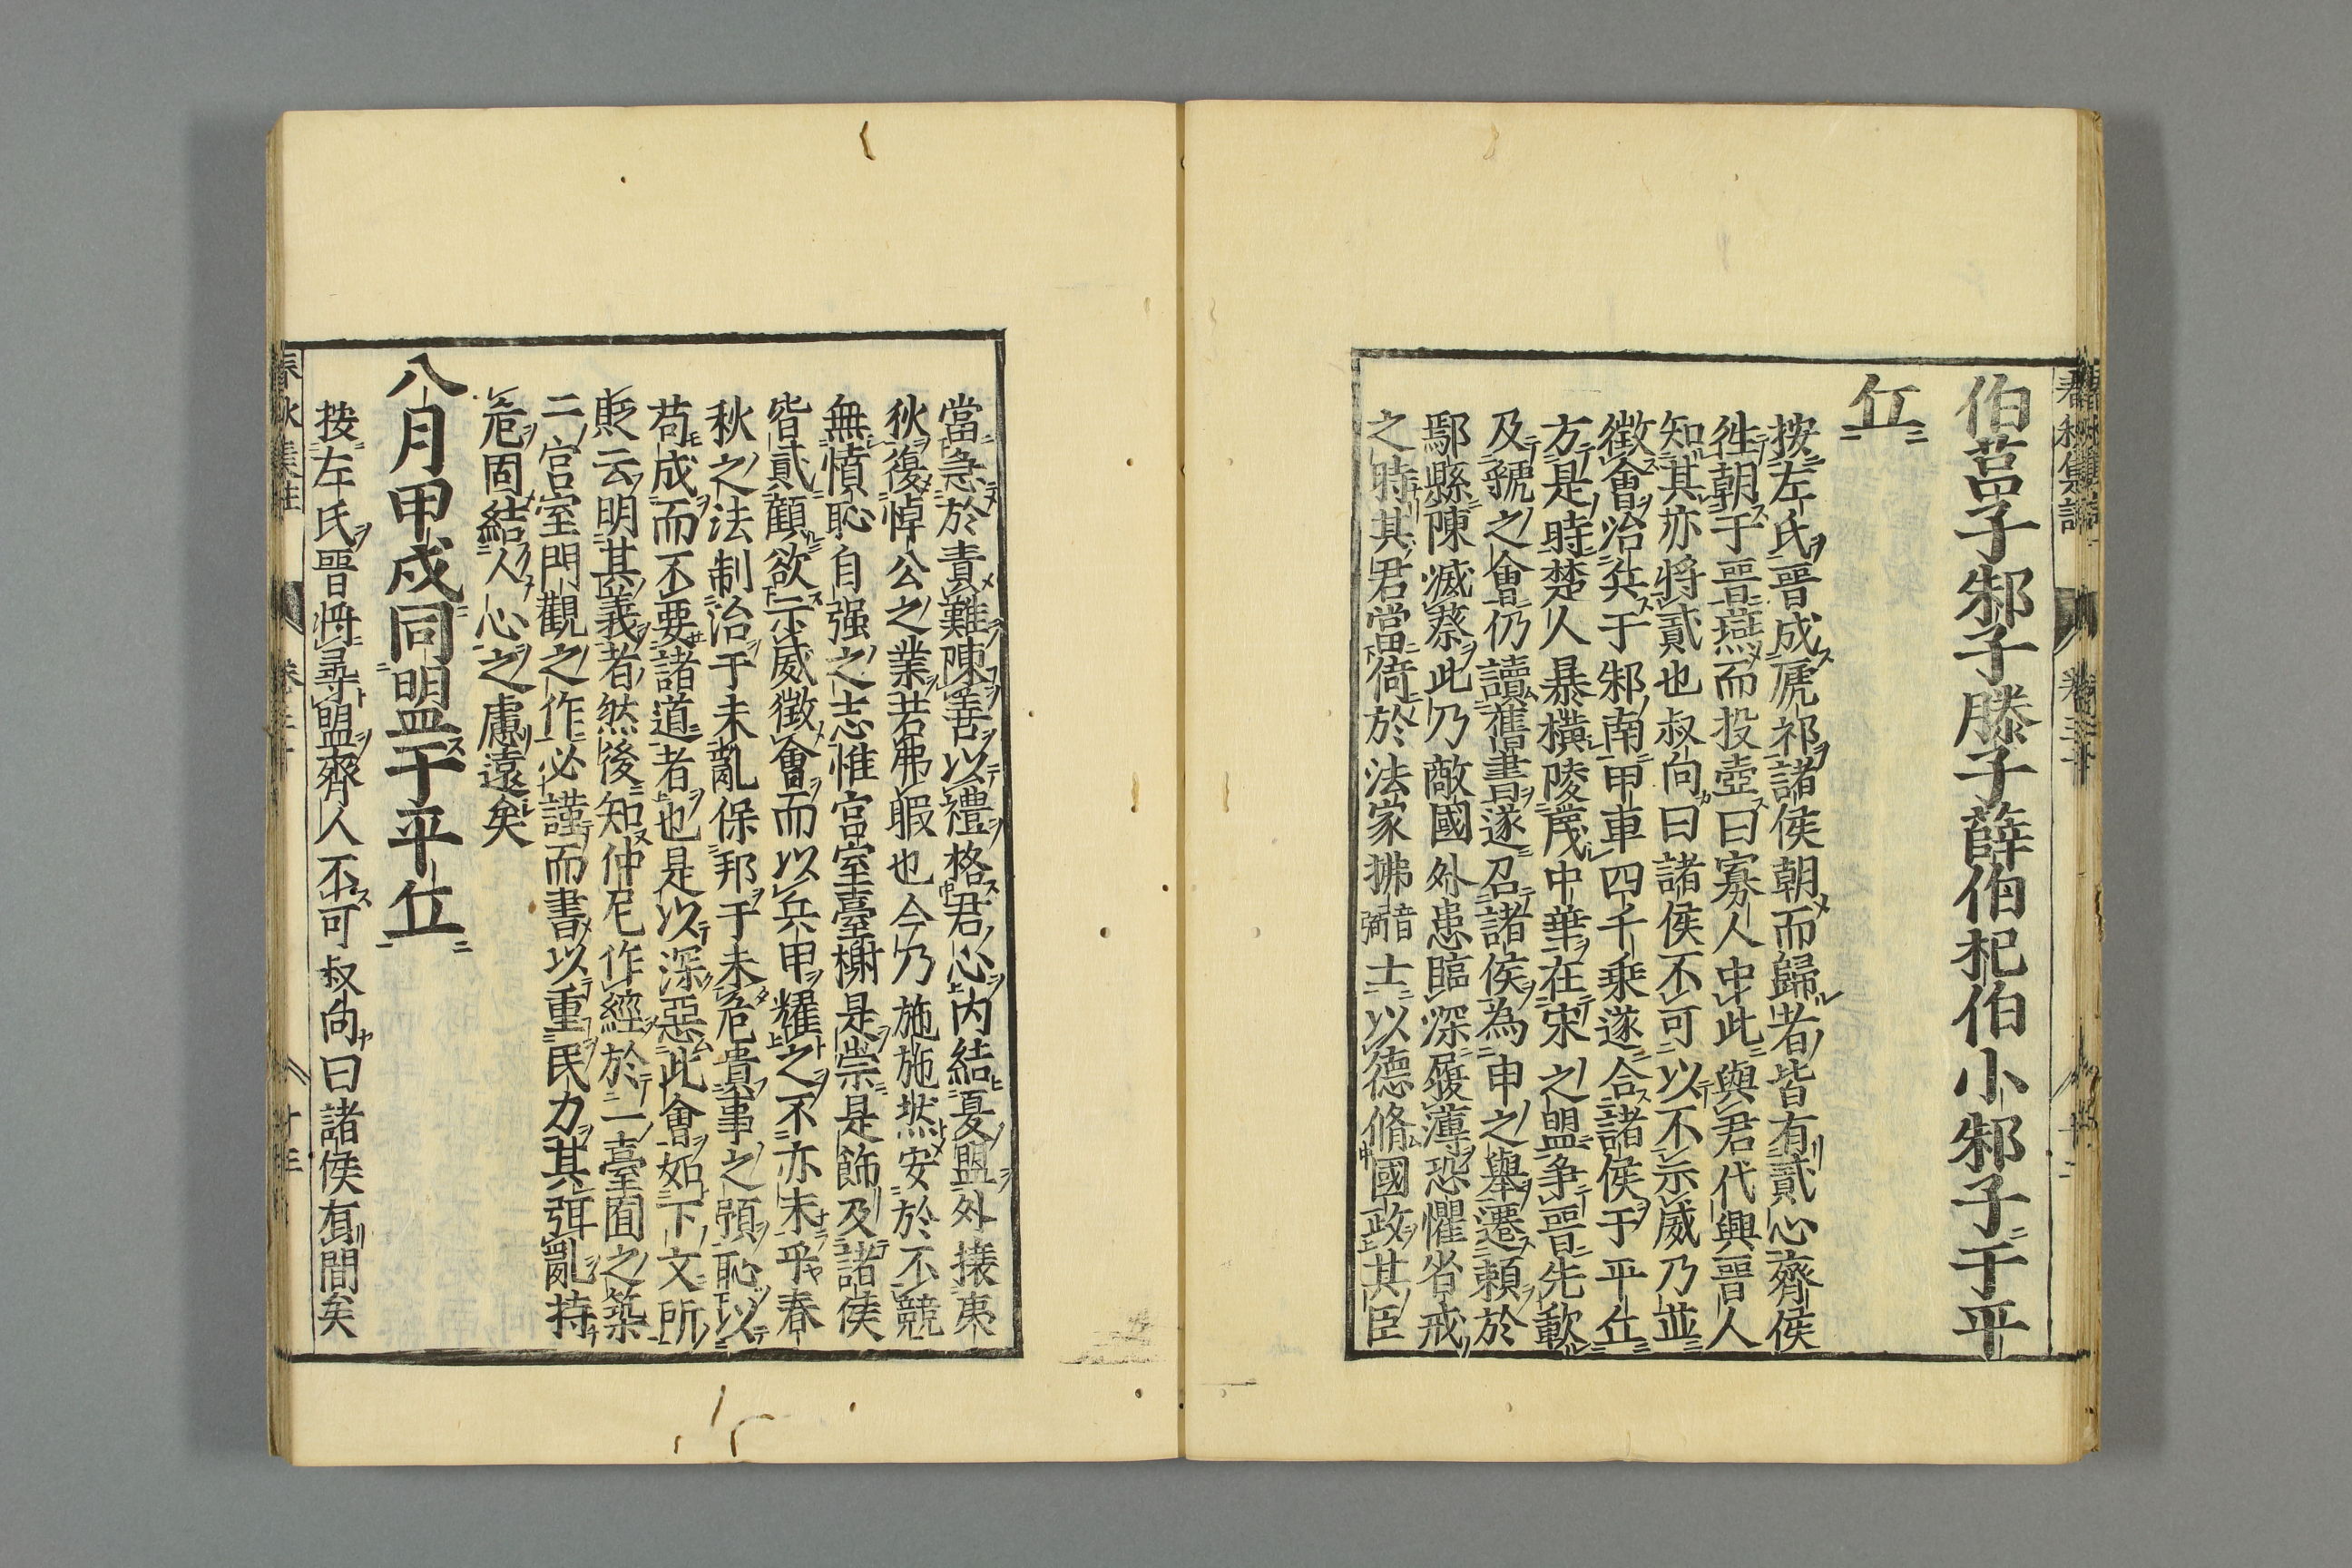 伯莒子邾子滕子薛伯杞伯小邾子于平
丘
按左氏晉成虒祁諸侯朝而歸者皆有貳心齊侯
徃朝于晉燕而投壺曰寡人中此與君代興晉人
知其亦將貳也叔向曰諸侯不可以不示威乃並
徵會治兵于邾南甲車四千乗遂合諸侯于平丘
方是時楚人暴横陵蔑中華在宋之盟争晉先歃
及虢之會仍讀舊書遂召諸侯為申之舉遷頼於
鄢縣陳滅蔡此乃敵國外患臨深履薄恐懼省戒
之時其君當倚於法家拂音弼士以德脩國政其臣
當急於責難陳善以禮格君心内結夏盟外攘夷
狄復悼公之業若弗暇也今乃施施然安於不競
無憤恥自强之志惟宫室臺榭是崇是飾及諸侯
皆貳顧欲示威徵會而以兵甲耀之不亦末乎春
秋之法制治于未亂保邦于未危貴事之預恥以
苟成而不要諸道者也是以深惡此會如下文所
貶云明其義者然後知仲尼作經於一臺囿之築
二宫室門觀之作必謹而書以重民力其弭亂持
危固結人心之慮遠矣
八月甲戌同盟于平丘
按左氏晉將尋盟齊人不可叔向曰諸侯有間矣
春秋集註 廿三